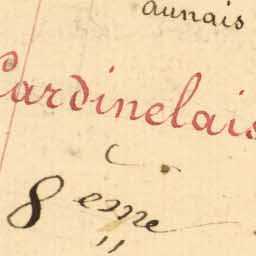 aunais
Cardinelais
8eme